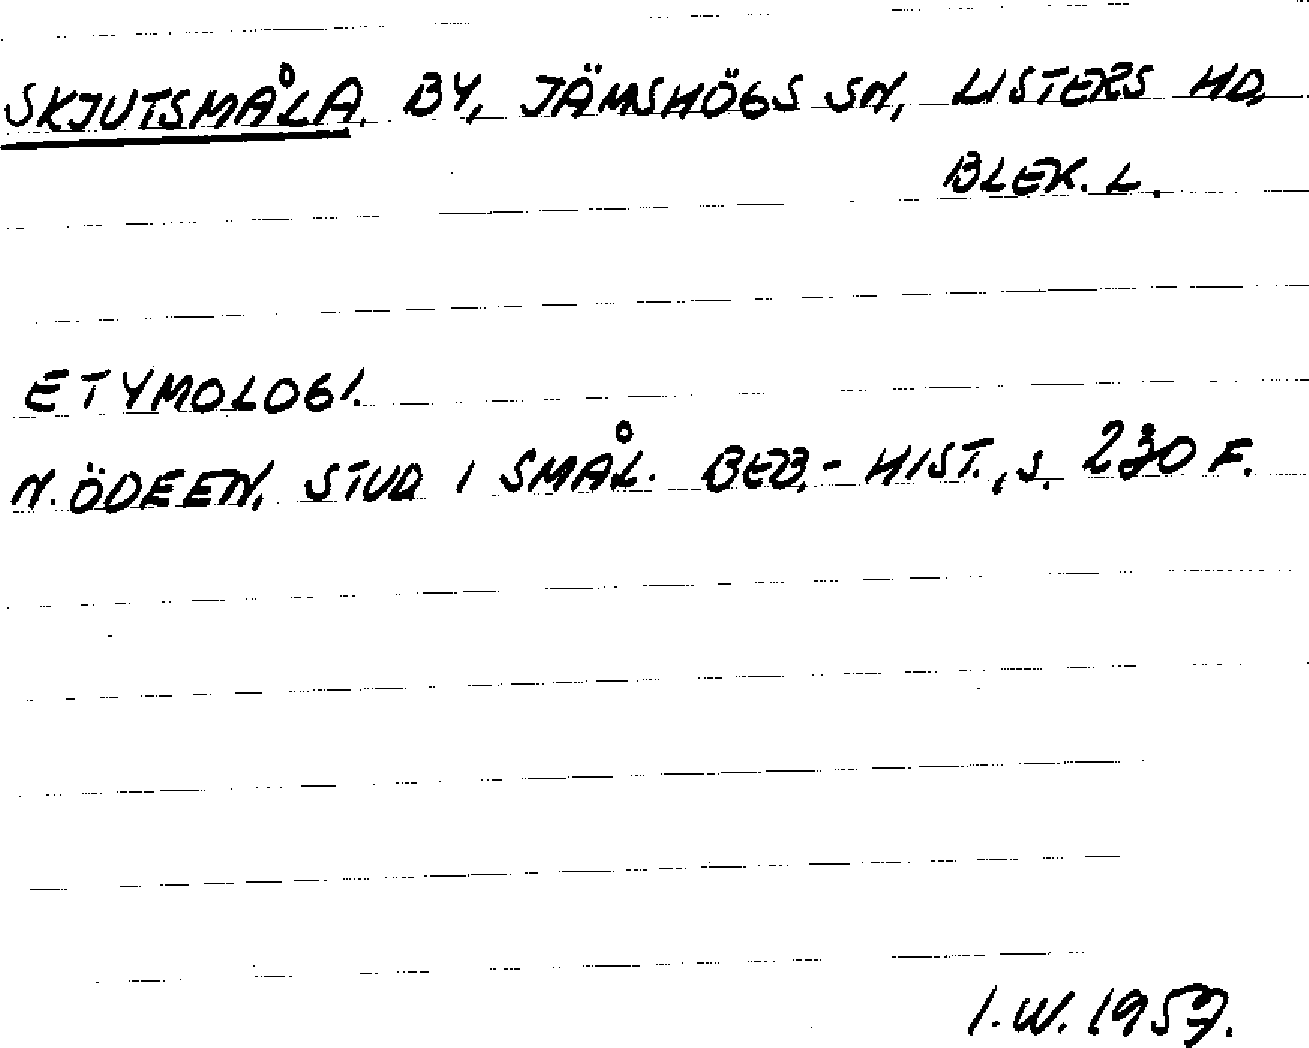 SKJUTSMÅLA. BY, JÄMSHÖGS SN, LISTERS HD,
BLEK. L.
ETYMOLOGI.
N. ÖDEEN, STUD I SMÅL. BEB.-HIST., S. 230 F.
I.W. 1957.